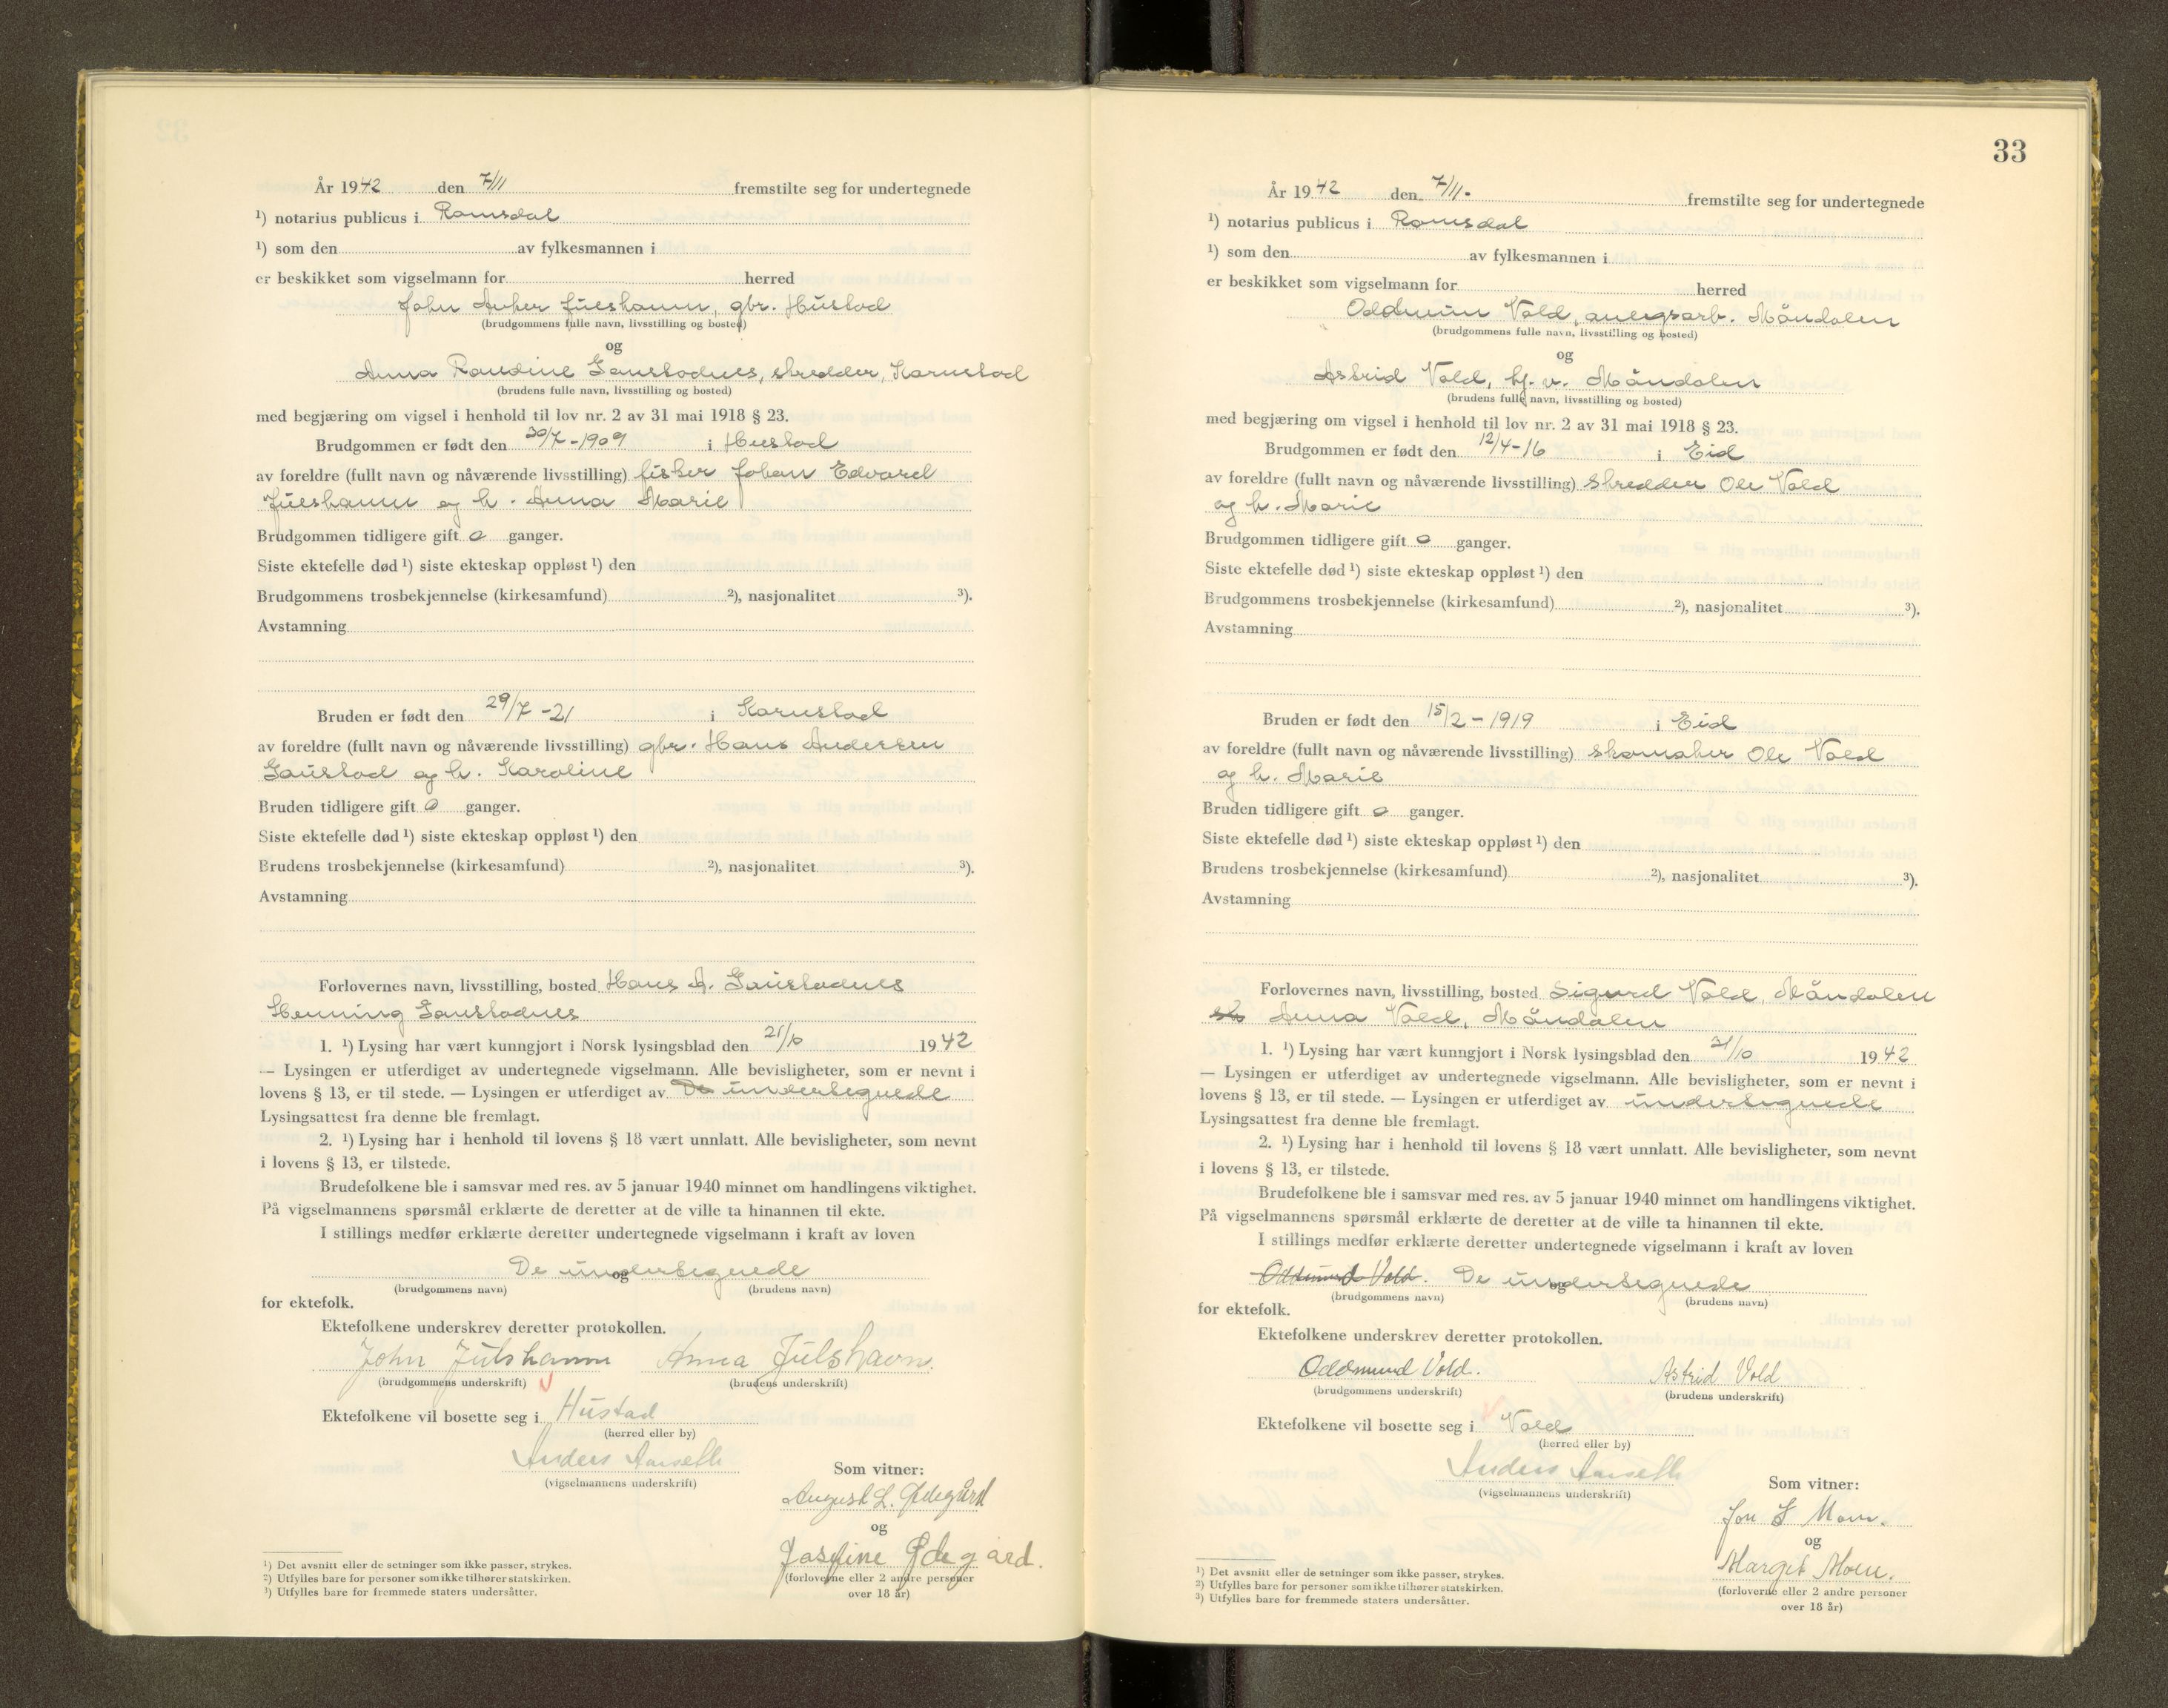 År 1942 den 7/11 fremstilte seg for undertegnede
¹) notarius publicus i Romsdal
¹) som den av fylkesmannen i
er beskikket som vigselmann for herred
John Anker Julshamn, gbr. Hustad
(brudgommens fulle navn, livsstilling og bosted)
og
Anna Randine Gaustadnes, skredder, Kornstad
(brudens fulle navn, livsstilling og bosted)
med begjæring om vigsel i henhold til lov nr. 2 av 31 mai 1918 § 23.
Brudgommen er født den 30/7-1909 i Hustad
av foreldre (fullt navn og nåværende livsstilling) fisker Johan Edvard
Julshamn og h. Anna Marie
Brudgommen tidligere gift 0 ganger.
Siste ektefelle død ¹) siste ekteskap oppløst ¹) den
Brudgommens trosbekjennelse (kirkesamfund) ²), nasjonalitet ³).
Avstamning
Bruden er født den 29/7-21 i Kornstad
av foreldre (fullt navn og nåværende livsstilling) gbr. Hans Andersen
Gaustad og h. Karoline
Bruden tidligere gift 0 ganger.
Siste ektefelle død ¹) siste ekteskap oppløst ¹) den
Brudens trosbekjennelse (kirkesamfund) ²), nasjonalitet ³).
Avstamning
Forlovernes navn, livsstilling, bosted Hans A. Gaustadnes
Henning Gaustadnes
1. ¹) Lysing har vært kunngjort i Norsk lysingsblad den 21/10 1942
— Lysingen er utferdiget av undertegnede vigselmann. Alle bevisligheter, som er nevnt i
lovens § 13, er til stede. — Lysingen er utferdiget av De undertegnede
Lysingsattest fra denne ble fremlagt.
2. ¹) Lysing har i henhold til lovens § 18 vært unnlatt. Alle bevisligheter, som nevnt
i lovens § 13, er tilstede.
Brudefolkene ble i samsvar med res. av 5 januar 1940 minnet om handlingens viktighet.
På vigselmannens spørsmål erklærte de deretter at de ville ta hinannen til ekte.
I stillings medfør erklærte deretter undertegnede vigselmann i kraft av loven
De undertegnede
og
(brudgommens navn) (brudens navn)
for ektefolk.
Ektefolkene underskrev deretter protokollen.
John Julshamn Anna Julshavn.
(brudgommens underskrift) (brudens underskrift)
Ektefolkene vil bosette seg i Hustad
(herred eller by)
Anders Aarseth
(vigselmannens underskrift)
Som vitner:
August L. Ødegård
og
Jasfine Ødegård.
(forloverne eller 2 andre personer
over 18 år)
¹) Det avsnitt eller de setninger som ikke passer, strykes.
²) Utfylles bare for personer som ikke tilhører statskirken.
³) Utfylles bare for fremmede staters undersåtter.
33
År 1942 den 7/11. fremstilte seg for undertegnede
¹) notarius publicus i Romsdal
¹) som den av fylkesmannen i
er beskikket som vigselmann for herred
Oddmun Vold, anlegsarb. Måndalen
(brudgommens fulle navn, livsstilling og bosted)
og
Astrid Vold, hj. v. Måndalen
(brudens fulle navn, livsstilling og bosted)
med begjæring om vigsel i henhold til lov nr. 2 av 31 mai 1918 § 23.
Brudgommen er født den 12/4-16 i Eid
av foreldre (fullt navn og nåværende livsstilling) Skredder Ole Vold
og h. Marie
Brudgommen tidligere gift 0 ganger.
Siste ektefelle død ¹) siste ekteskap oppløst ¹) den
Brudgommens trosbekjennelse (kirkesamfund) ²), nasjonalitet ³).
Avstamning
Bruden er født den 15/2-1919 i Eid
av foreldre (fullt navn og nåværende livsstilling) skomaker Ole Vold
og h. Marie
Bruden tidligere gift 0 ganger.
Siste ektefelle død ¹) siste ekteskap oppløst ¹) den
Brudens trosbekjennelse (kirkesamfund) ²), nasjonalitet ³).
Avstamning
Forlovernes navn, livsstilling, bosted Sigurd Vold, Måndalen
Anna Vold, Måndalen
1. ¹) Lysing har vært kunngjort i Norsk lysingsblad den 21/10 1942
— Lysingen er utferdiget av undertegnede vigselmann. Alle bevisligheter, som er nevnt i
lovens § 13, er til stede. — Lysingen er utferdiget av undertegnede
Lysingsattest fra denne ble fremlagt.
2. ¹) Lysing har i henhold til lovens § 18 vært unnlatt. Alle bevisligheter, som nevnt
i lovens § 13, er tilstede.
Brudefolkene ble i samsvar med res. av 5 januar 1940 minnet om handlingens viktighet.
På vigselmannens spørsmål erklærte de deretter at de ville ta hinannen til ekte.
I stillings medfør erklærte deretter undertegnede vigselmann i kraft av loven
Oddmund Vold. De undertegnede
og
(brudgommens navn) (brudens navn)
for ektefolk.
Ektefolkene underskrev deretter protokollen.
Oddmund Vold. Astrid Vold
(brudgommens underskrift) (brudens underskrift)
Ektefolkene vil bosette seg i Vold
(herred eller by)
Anders Aarseth
(vigselmannens underskrift)
Som vitner:
Jon S Moen.
og
Margit Moen.
(forloverne eller 2 andre personer
over 18 år)
¹) Det avsnitt eller de setninger som ikke passer, strykes.
²) Utfylles bare for personer som ikke tilhører statskirken.
³) Utfylles bare for fremmede staters undersåtter.